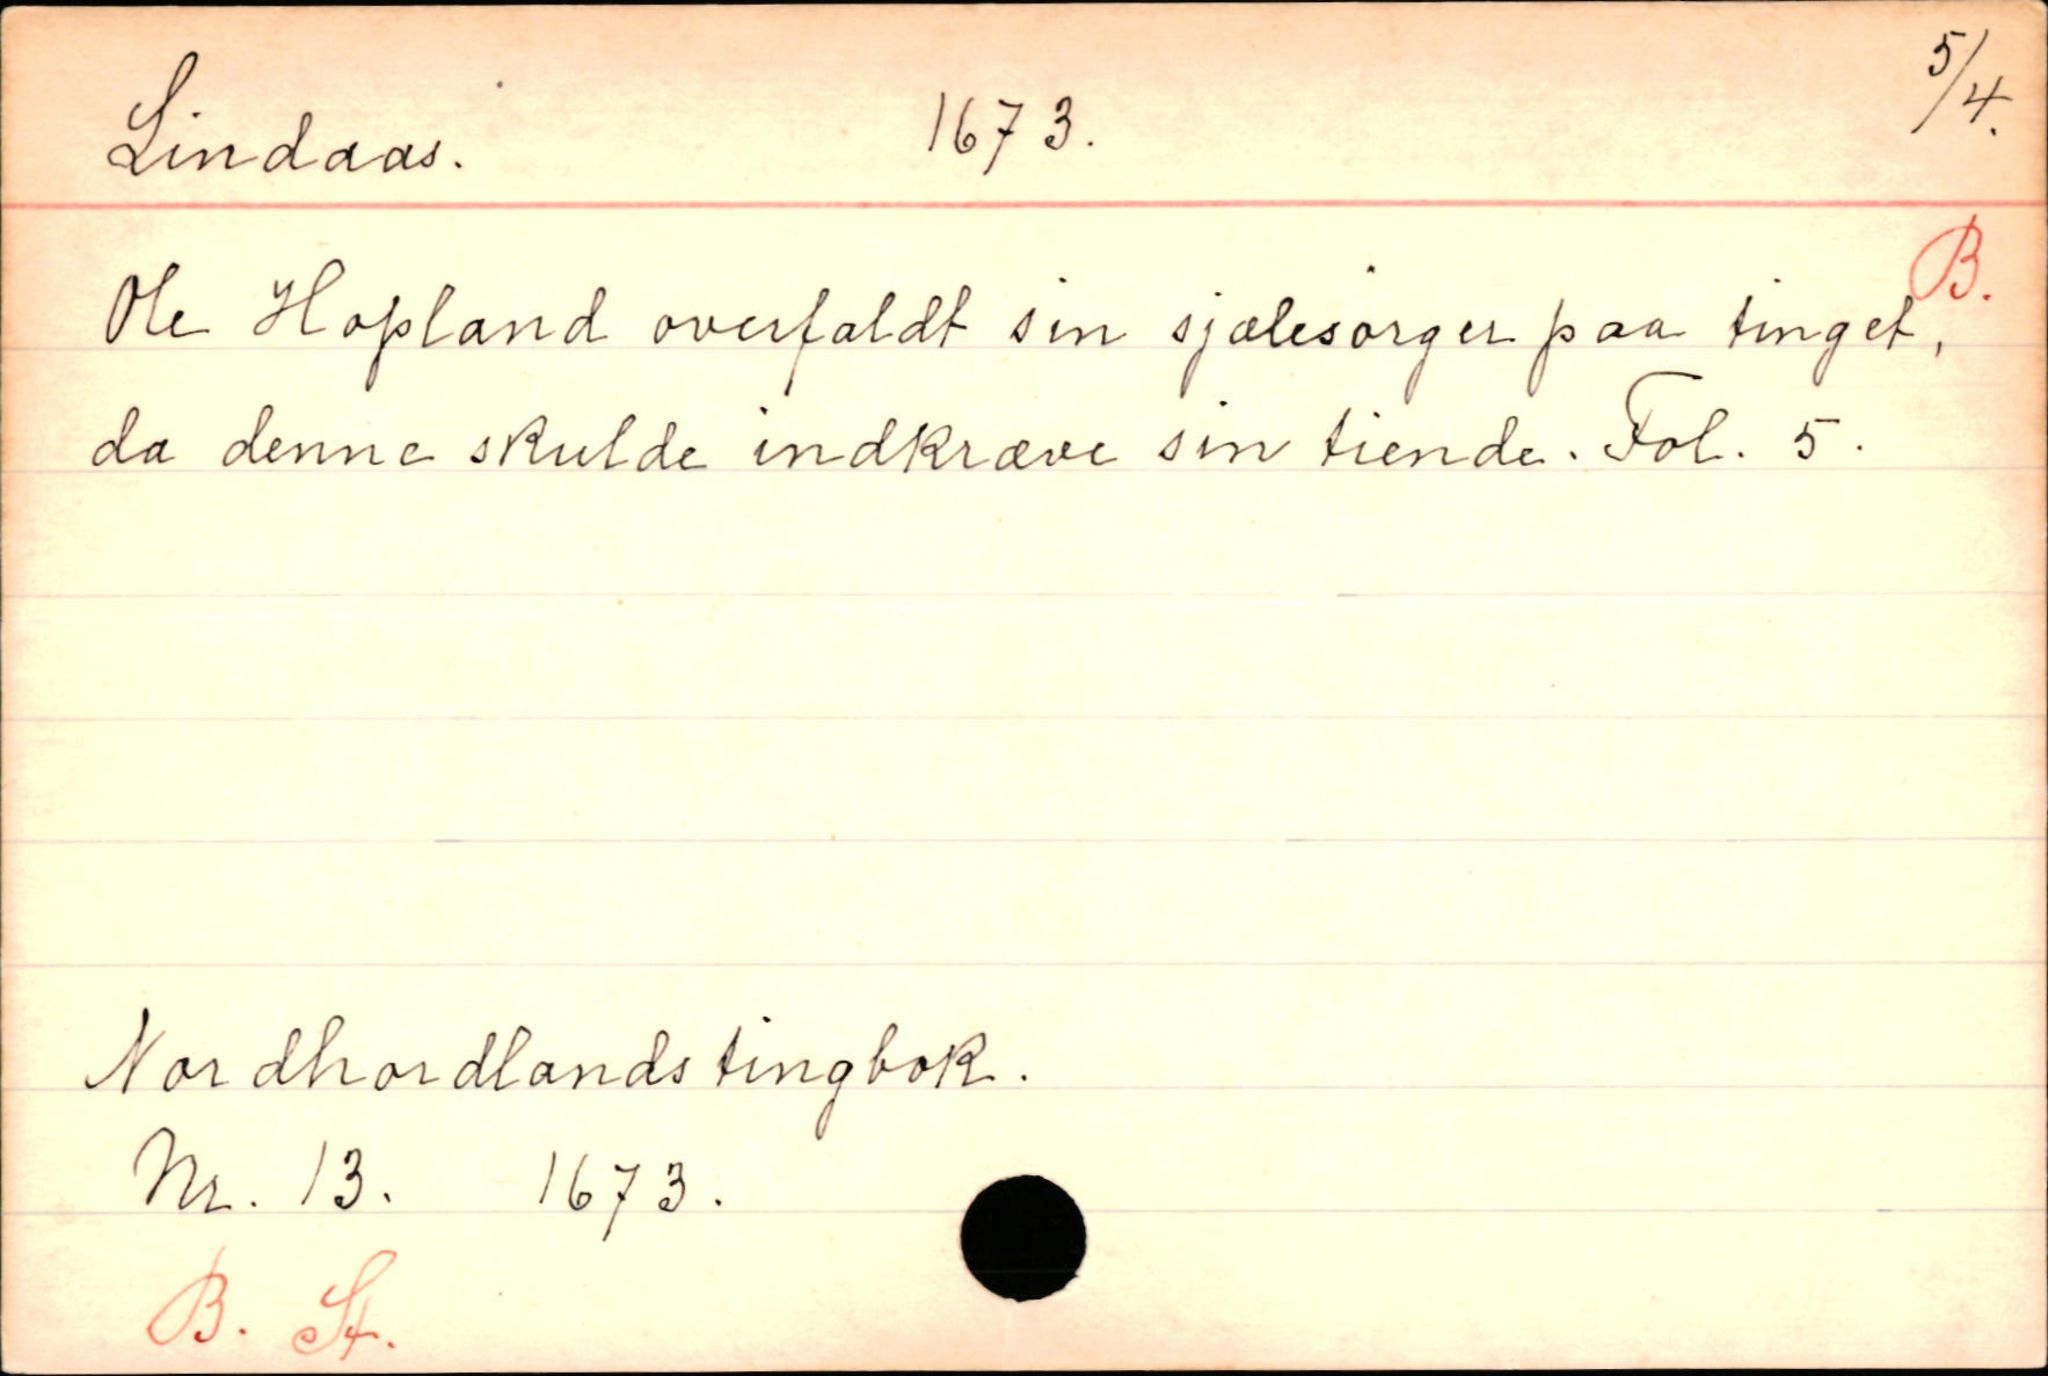 Lindaas. 1673. 5/4.
B.
Ole Hopland overfaldt sin sjælesørger paa tinget,
da denne skulde indkræve sin tiende. Fol. 5.
Nordhordlands tingbok.
Nr. 13. 1673.
B. St.